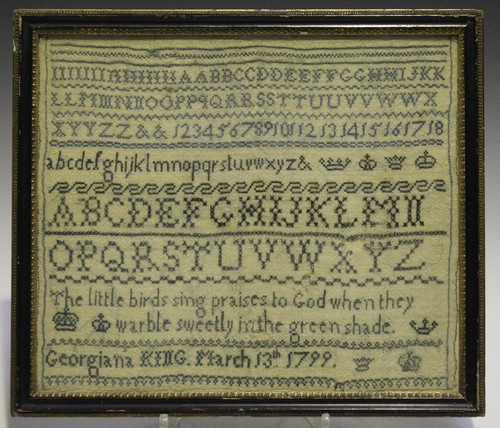 IIIIIIIIHHHHHAABBCCDDEEFFGGHHIJKK
LLMMNNOOPPQQRRSSTTUUVVWWX
XYYZZ&&123456789101112131415161718
abcdefghijklmnopqrstuvwxyz&
ABCDEFGHIJKLMN
OPQRSTUVWXYZ
The little birds sing praises to God when they
warble sweetly in the green shade.
Georgiana KING. March 13th 1799.